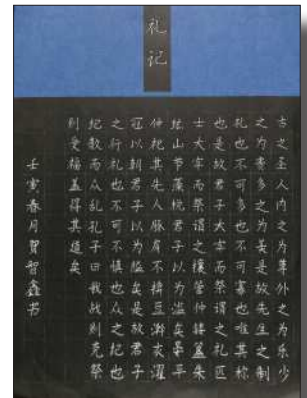 礼记
古之圣人内之为尊外之为乐少
之为贵多之为美是故先生之制
礼也不可多也不可寡也唯其称
也是故君子大牢而祭谓之礼匹
士大牢而祭谓之攘管仲镂簋朱
纮山节藻棁君子以为滥矣晏平
仲祀其先人豚肩不揜豆澣衣濯
冠以朝君子以为隘矣是故君子
之行礼也不可不慎也众之纪也
纪散而众乱孔子曰我战则克祭
则受福盖得其道矣
壬寅春月賀智鑫书